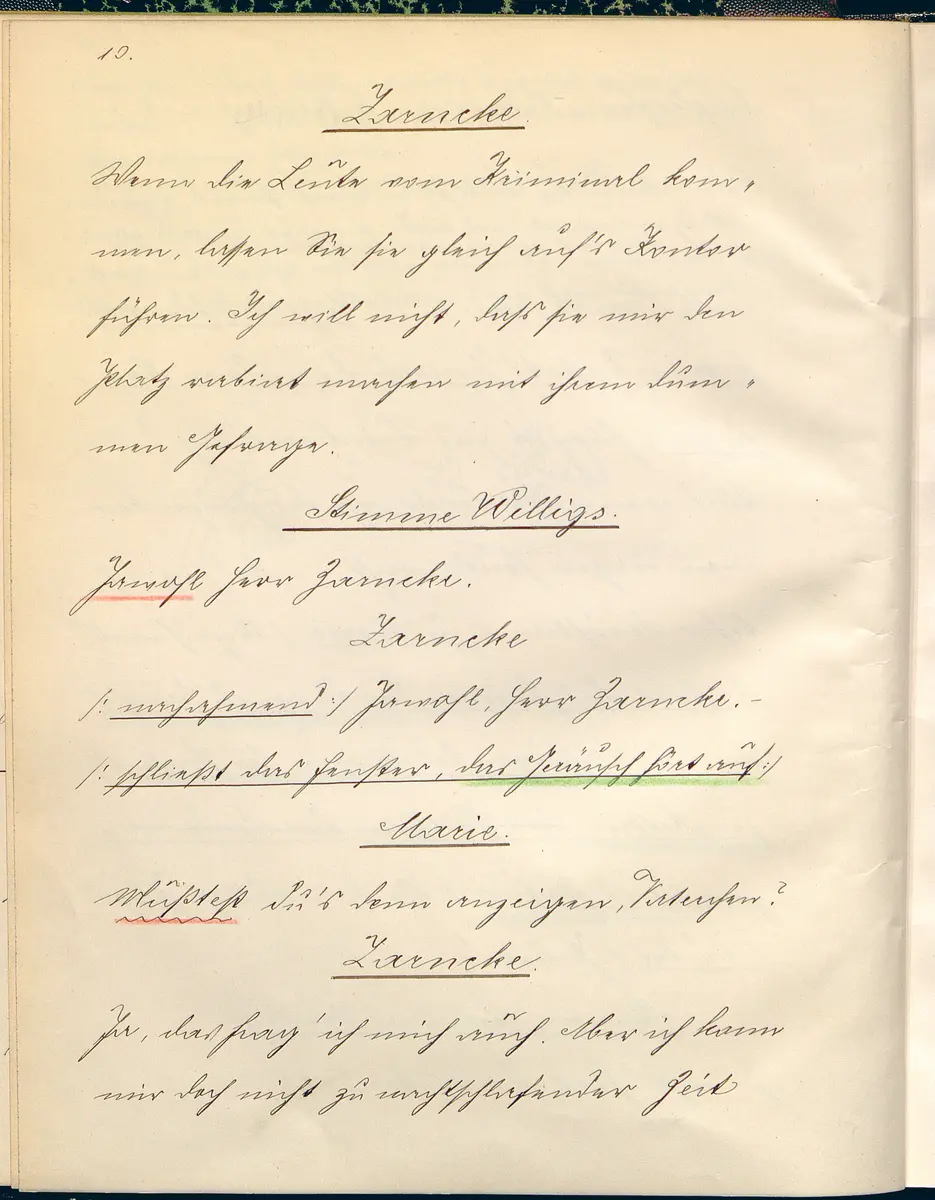 10.
Zarncke.
Wenn die Leute vom Kriminal kom„
men, lassen Sie sie gleich auf's Kontor
führen. Ich will nicht, dass sie mir den
Platz rabiat machen mit ihrem dum„
men Gefrage.
Stimme Willigs.
Jawohl Herr Zarncke.
Zarncke
/: nachahmend :/ Jawohl, Herr Zarncke. –
/: schließt das Fenster, das Geräusch hört auf :/
Marie.
Mußtest du's denn anzeigen, Vaterchen?
Zarncke.
Ja, das frag' ich mich auch. Aber ich kann
mir doch nicht zu nachtschlafender Zeit